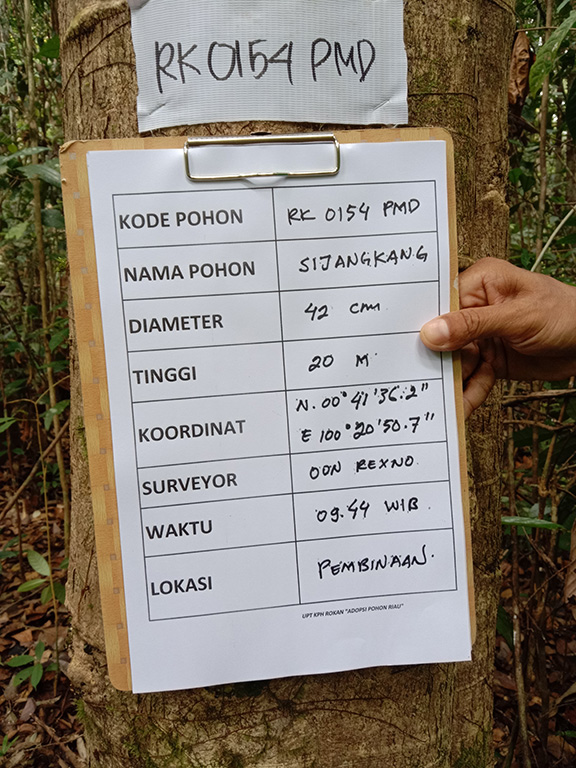 RK 0154 PMD
KODE POHON RK 0154 PMD
NAMA POHON SIJANGKANG
DIAMETER 42 cm
TINGGI 20 M
KOORDINAT N. 00° 41' 36.2"
E 100° 20' 50.7"
SURVEYOR OON REXNO.
WAKTU 09.44 WIB.
LOKASI PEMBINAAN.
UPT KPH ROKAN "ADOPSI POHON RIAU"